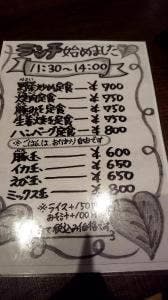 ランチ始めました
11:30～14:00
野菜炒め定食 ― ￥700
焼肉定食 ― ￥750
豚キムチ定食 ― ￥750
生姜焼き定食 ― ￥750
ハンバーグ定食 ― ￥800
※ごはんは、おかわり自由です
豚玉 ― ￥600
イカ玉 ― ￥650
えび玉 ― ￥650
ミックス玉 ― ￥800
※ライス+150円
みそ汁+100円
税込み価格です